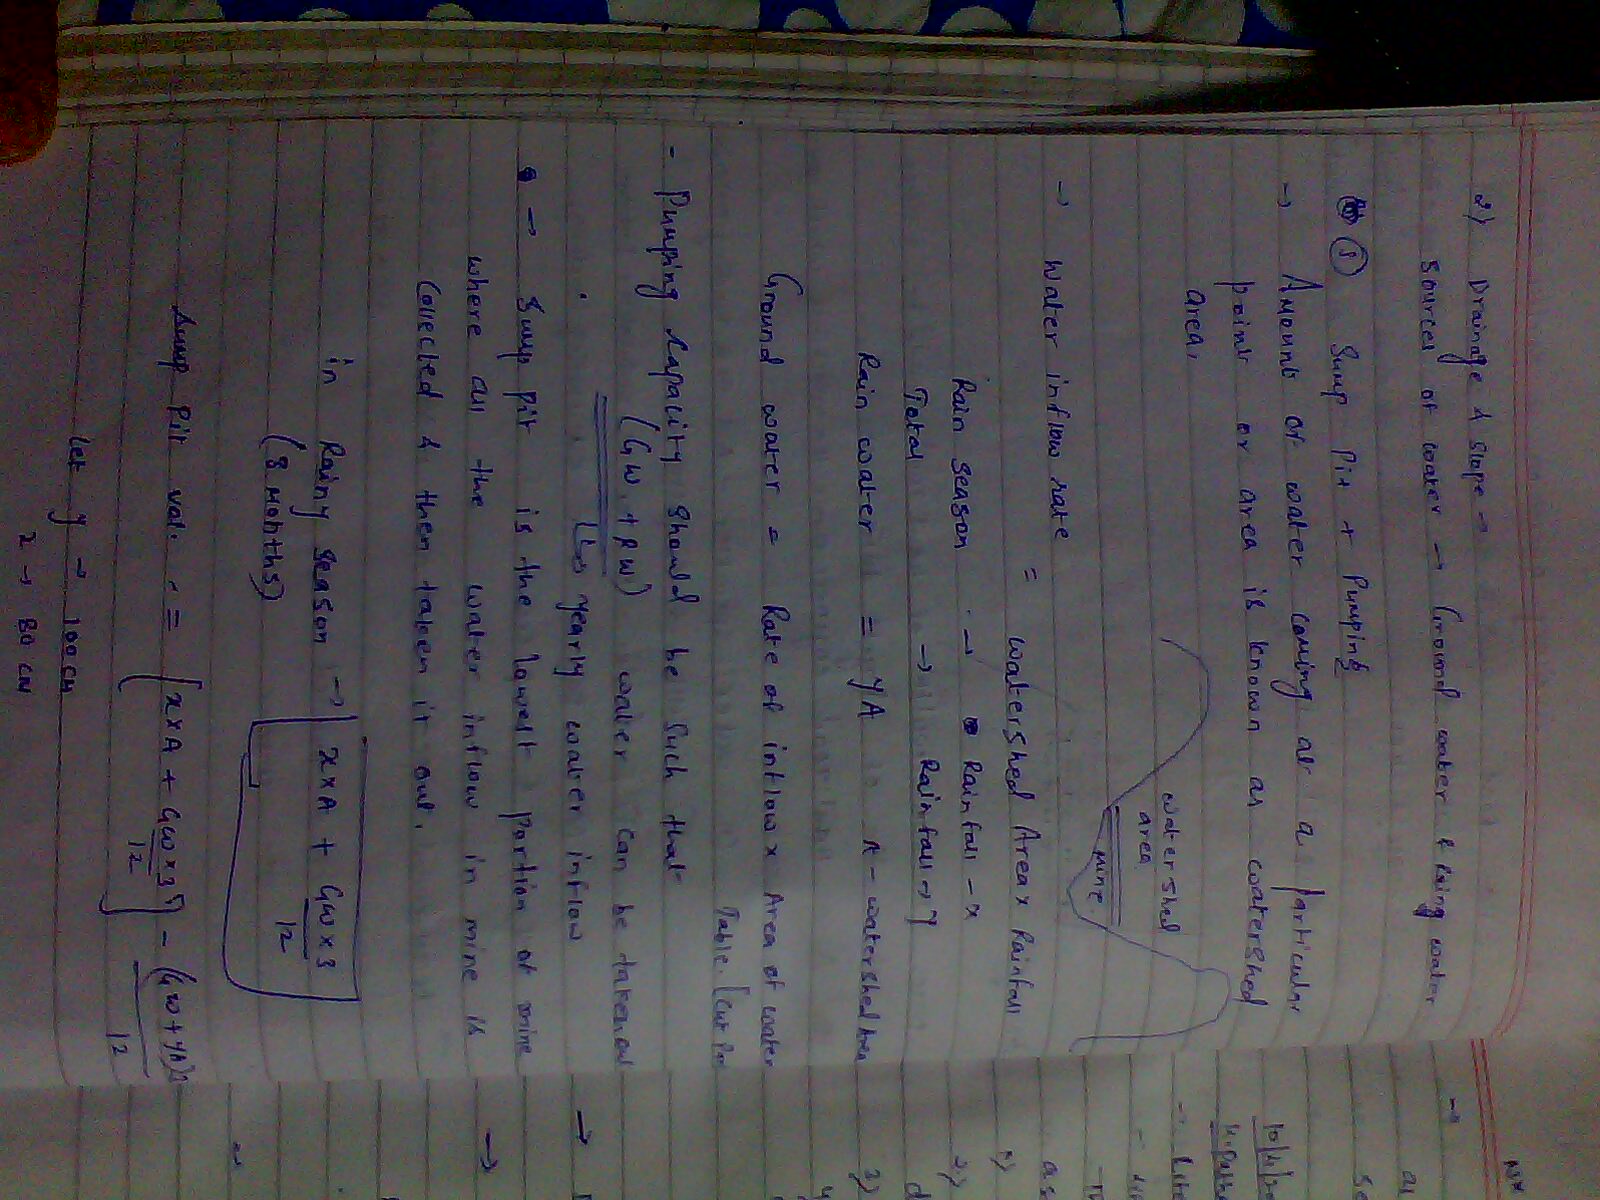 2) Drainage & slope →
Sources of water → Ground water & Raing water
① Sump Pit + Pumping
→ Amount of water coming at a particular
point or area is known as watershed
area.
watershed
area
mine
→ Water inflow rate
= watershed Area x Rainfall
Rain season → Rainfall - x
Total → Rainfall → y
Rain water = yA A - watershed Area
Ground water = Rate of inflow x Area of water
Table.
- Pumping capacity should be such that
(GW + RW) water can be taken out
↳ yearly water inflow
→ Sump pit is the lowest portion of mine
where all the water inflow in mine is
collected & then taken it out.
in Rainy season → x x A + GW x 3
12
(8 Months)
Sump Pit vol. = [x x A + GW x 3] - (GW + yA)
12
12
Let y → 100 CM
x → 80 CM